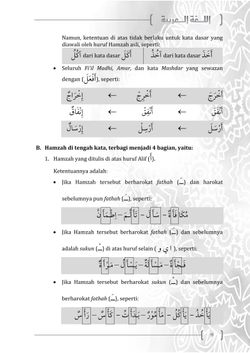 اللغة العربية
Namun, ketentuan di atas tidak berlaku untuk kata dasar yang
diawali oleh huruf Hamzah asli, seperti:
أَخَذَ dari kata dasar أُخِذَ
أَكَلَ dari kata dasar أُكُلٌ
• Seluruh Fi'il Madhi, Amar, dan kata Mashdar yang sewazan
dengan (أَفْعَلَ), seperti:
أَخْرَجَ ← أَخْرِجْ ← إِخْرَاجٌ
أَنْفَقَ ← أَنْفِقْ ← إِنْفَاقٌ
أَرْسَلَ ← أَرْسِلْ ← إِرْسَالٌ
B. Hamzah di tengah kata, terbagi menjadi 4 bagian, yaitu:
1. Hamzah yang ditulis di atas huruf Alif (أ).
Ketentuannya adalah:
• Jika Hamzah tersebut berharokat fathah (ـَ) dan harokat
sebelumnya pun fathah (ـَ), seperti:
مُكَافَأَةٌ – سَأَلَ – تَأَلَّمَ – اِطْمَأَنَّ
• Jika Hamzah tersebut berharokat fathah (ـَ) dan sebelumnya
adalah sukun (ـْ) di atas huruf selain (ا ي و), seperti:
فَجْأَةً – مَسْأَلَةٌ – يَسْأَلُ – مَرْأَةٌ
• Jika Hamzah tersebut berharokat sukun (ـْ) dan sebelumnya
berharokat fathah (ـَ), seperti:
يَأْخُذُ – يَأْكُلُ – مَأْمُوْرٌ – كَأْسٌ – رَأْسٌ